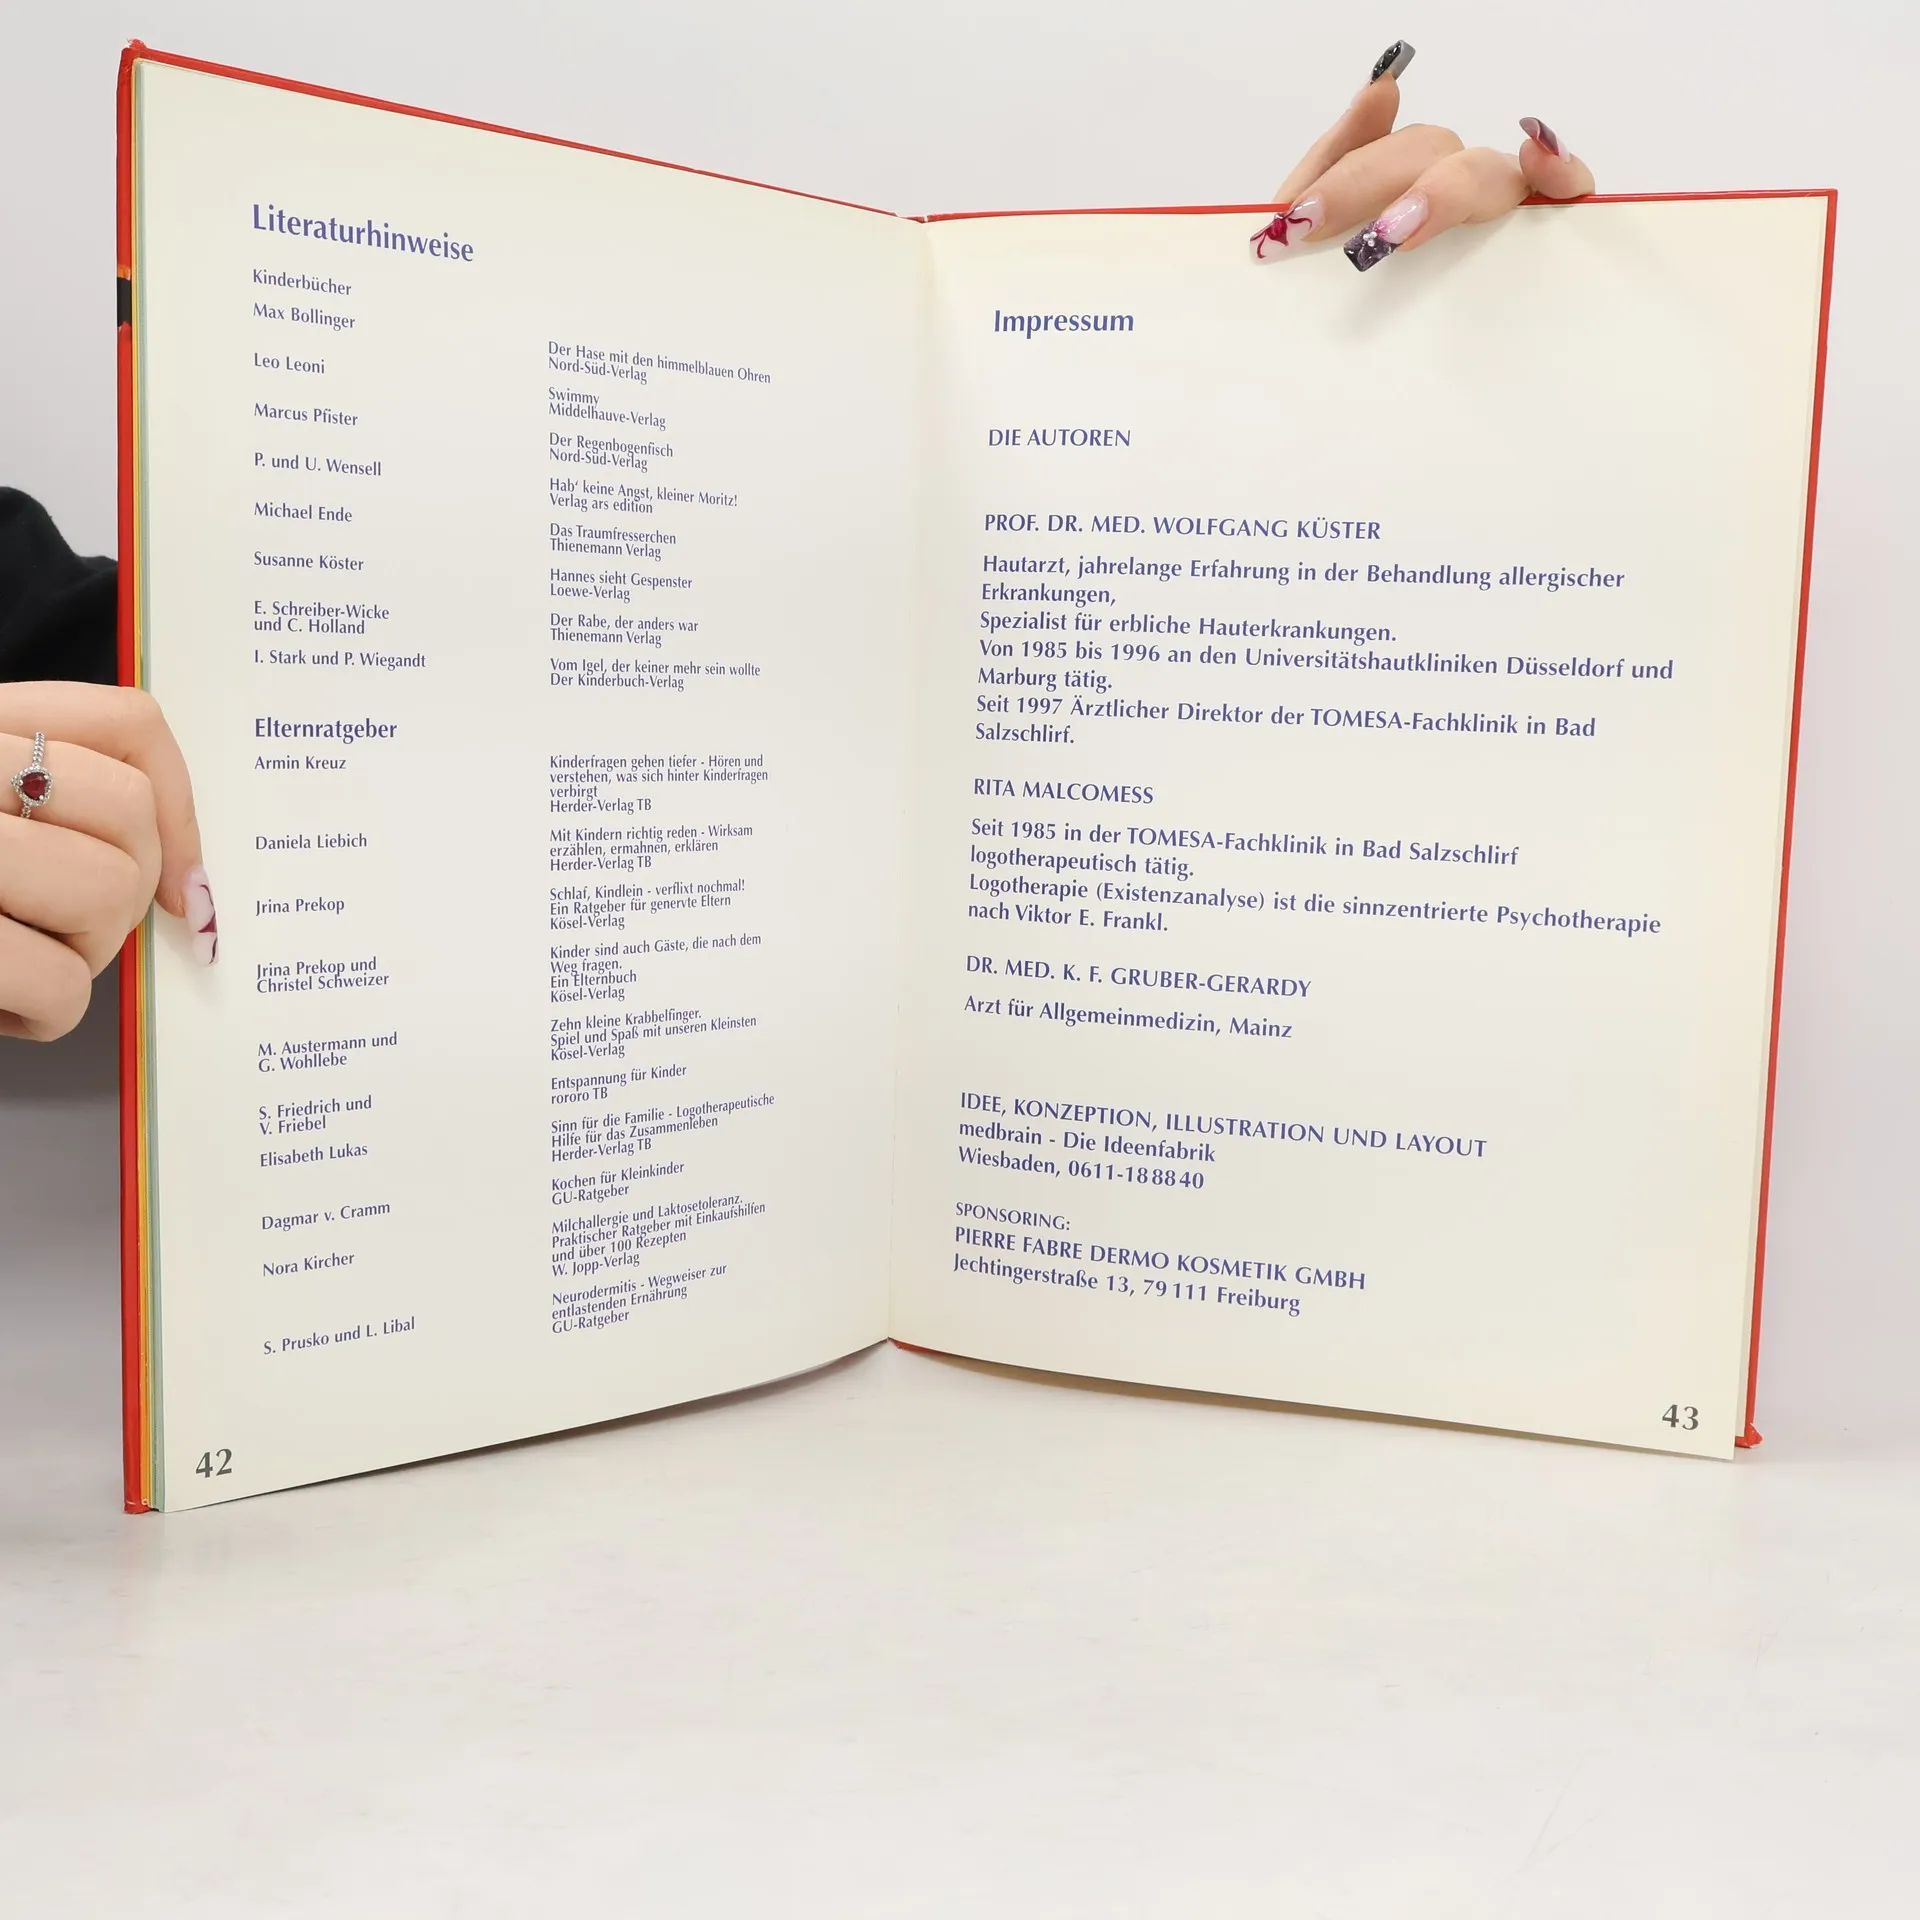 Literaturhinweise
Kinderbücher
Max Bollinger
Der Hase mit den himmelblauen Ohren
Nord-Süd-Verlag
Leo Leoni
Swimmy
Middelhauve-Verlag
Marcus Pfister
Der Regenbogenfisch
Nord-Süd-Verlag
P. und U. Wensell
Hab‘ keine Angst, kleiner Moritz!
Verlag ars edition
Michael Ende
Das Traumfresserchen
Thienemann Verlag
Susanne Köster
Hannes sieht Gespenster
Loewe-Verlag
E. Schreiber-Wicke
und C. Holland
Der Rabe, der anders war
Thienemann Verlag
I. Stark und P. Wiegandt
Vom Igel, der keiner mehr sein wollte
Der Kinderbuch-Verlag
Elternratgeber
Armin Kreuz
Kinderfragen gehen tiefer - Hören und
verstehen, was sich hinter Kinderfragen
verbirgt
Herder-Verlag TB
Daniela Liebich
Mit Kindern richtig reden - Wirksam
erzählen, ermahnen, erklären
Herder-Verlag TB
Jrina Prekop
Schlaf, Kindlein - verflixt nochmal!
Ein Ratgeber für genervte Eltern
Kösel-Verlag
Jrina Prekop und
Christel Schweizer
Kinder sind auch Gäste, die nach dem
Weg fragen.
Ein Elternbuch
Kösel-Verlag
M. Austermann und
G. Wohllebe
Zehn kleine Krabbelfinger.
Spiel und Spaß mit unseren Kleinsten
Kösel-Verlag
S. Friedrich und
V. Friebel
Entspannung für Kinder
rororo TB
Elisabeth Lukas
Sinn für die Familie - Logotherapeutische
Hilfe für das Zusammenleben
Herder-Verlag TB
Dagmar v. Cramm
Kochen für Kleinkinder
GU-Ratgeber
Nora Kircher
Milchallergie und Laktosetoleranz.
Praktischer Ratgeber mit Einkaufshilfen
und über 100 Rezepten
W. Jopp-Verlag
S. Prusko und L. Libal
Neurodermitis - Wegweiser zur
entlastenden Ernährung
GU-Ratgeber
42
Impressum
DIE AUTOREN
PROF. DR. MED. WOLFGANG KÜSTER
Hautarzt, jahrelange Erfahrung in der Behandlung allergischer
Erkrankungen,
Spezialist für erbliche Hauterkrankungen.
Von 1985 bis 1996 an den Universitätshautkliniken Düsseldorf und
Marburg tätig.
Seit 1997 Ärztlicher Direktor der TOMESA-Fachklinik in Bad
Salzschlirf.
RITA MALCOMESS
Seit 1985 in der TOMESA-Fachklinik in Bad Salzschlirf
logotherapeutisch tätig.
Logotherapie (Existenzanalyse) ist die sinnzentrierte Psychotherapie
nach Viktor E. Frankl.
DR. MED. K. F. GRUBER-GERARDY
Arzt für Allgemeinmedizin, Mainz
IDEE, KONZEPTION, ILLUSTRATION UND LAYOUT
medbrain - Die Ideenfabrik
Wiesbaden, 0611-188840
SPONSORING:
PIERRE FABRE DERMO KOSMETIK GMBH
Jechtingerstraße 13, 79111 Freiburg
43